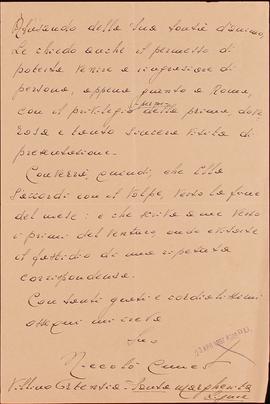 Abusando della Sua bontà d'animo,
Le chiedo anche il permesso di
poterla venire a ringraziare di
persona, appena giunto a Roma,
con il privilegio della prima, dove
rosa e tanto sincera visita di
presentazione.
Converrà, quindi, che Ella
s'accordi con il Volpe, verso la fine
del mese: e che scriva a me verso
i primi del venturo, onde evitare
il fastidio di una ripetuta
corrispondenza.
Con tanti grati e cordialissimi
ossequi mi creda
Suo
Niccolò
Villino Ortensia - Santa Margherita
Ligure